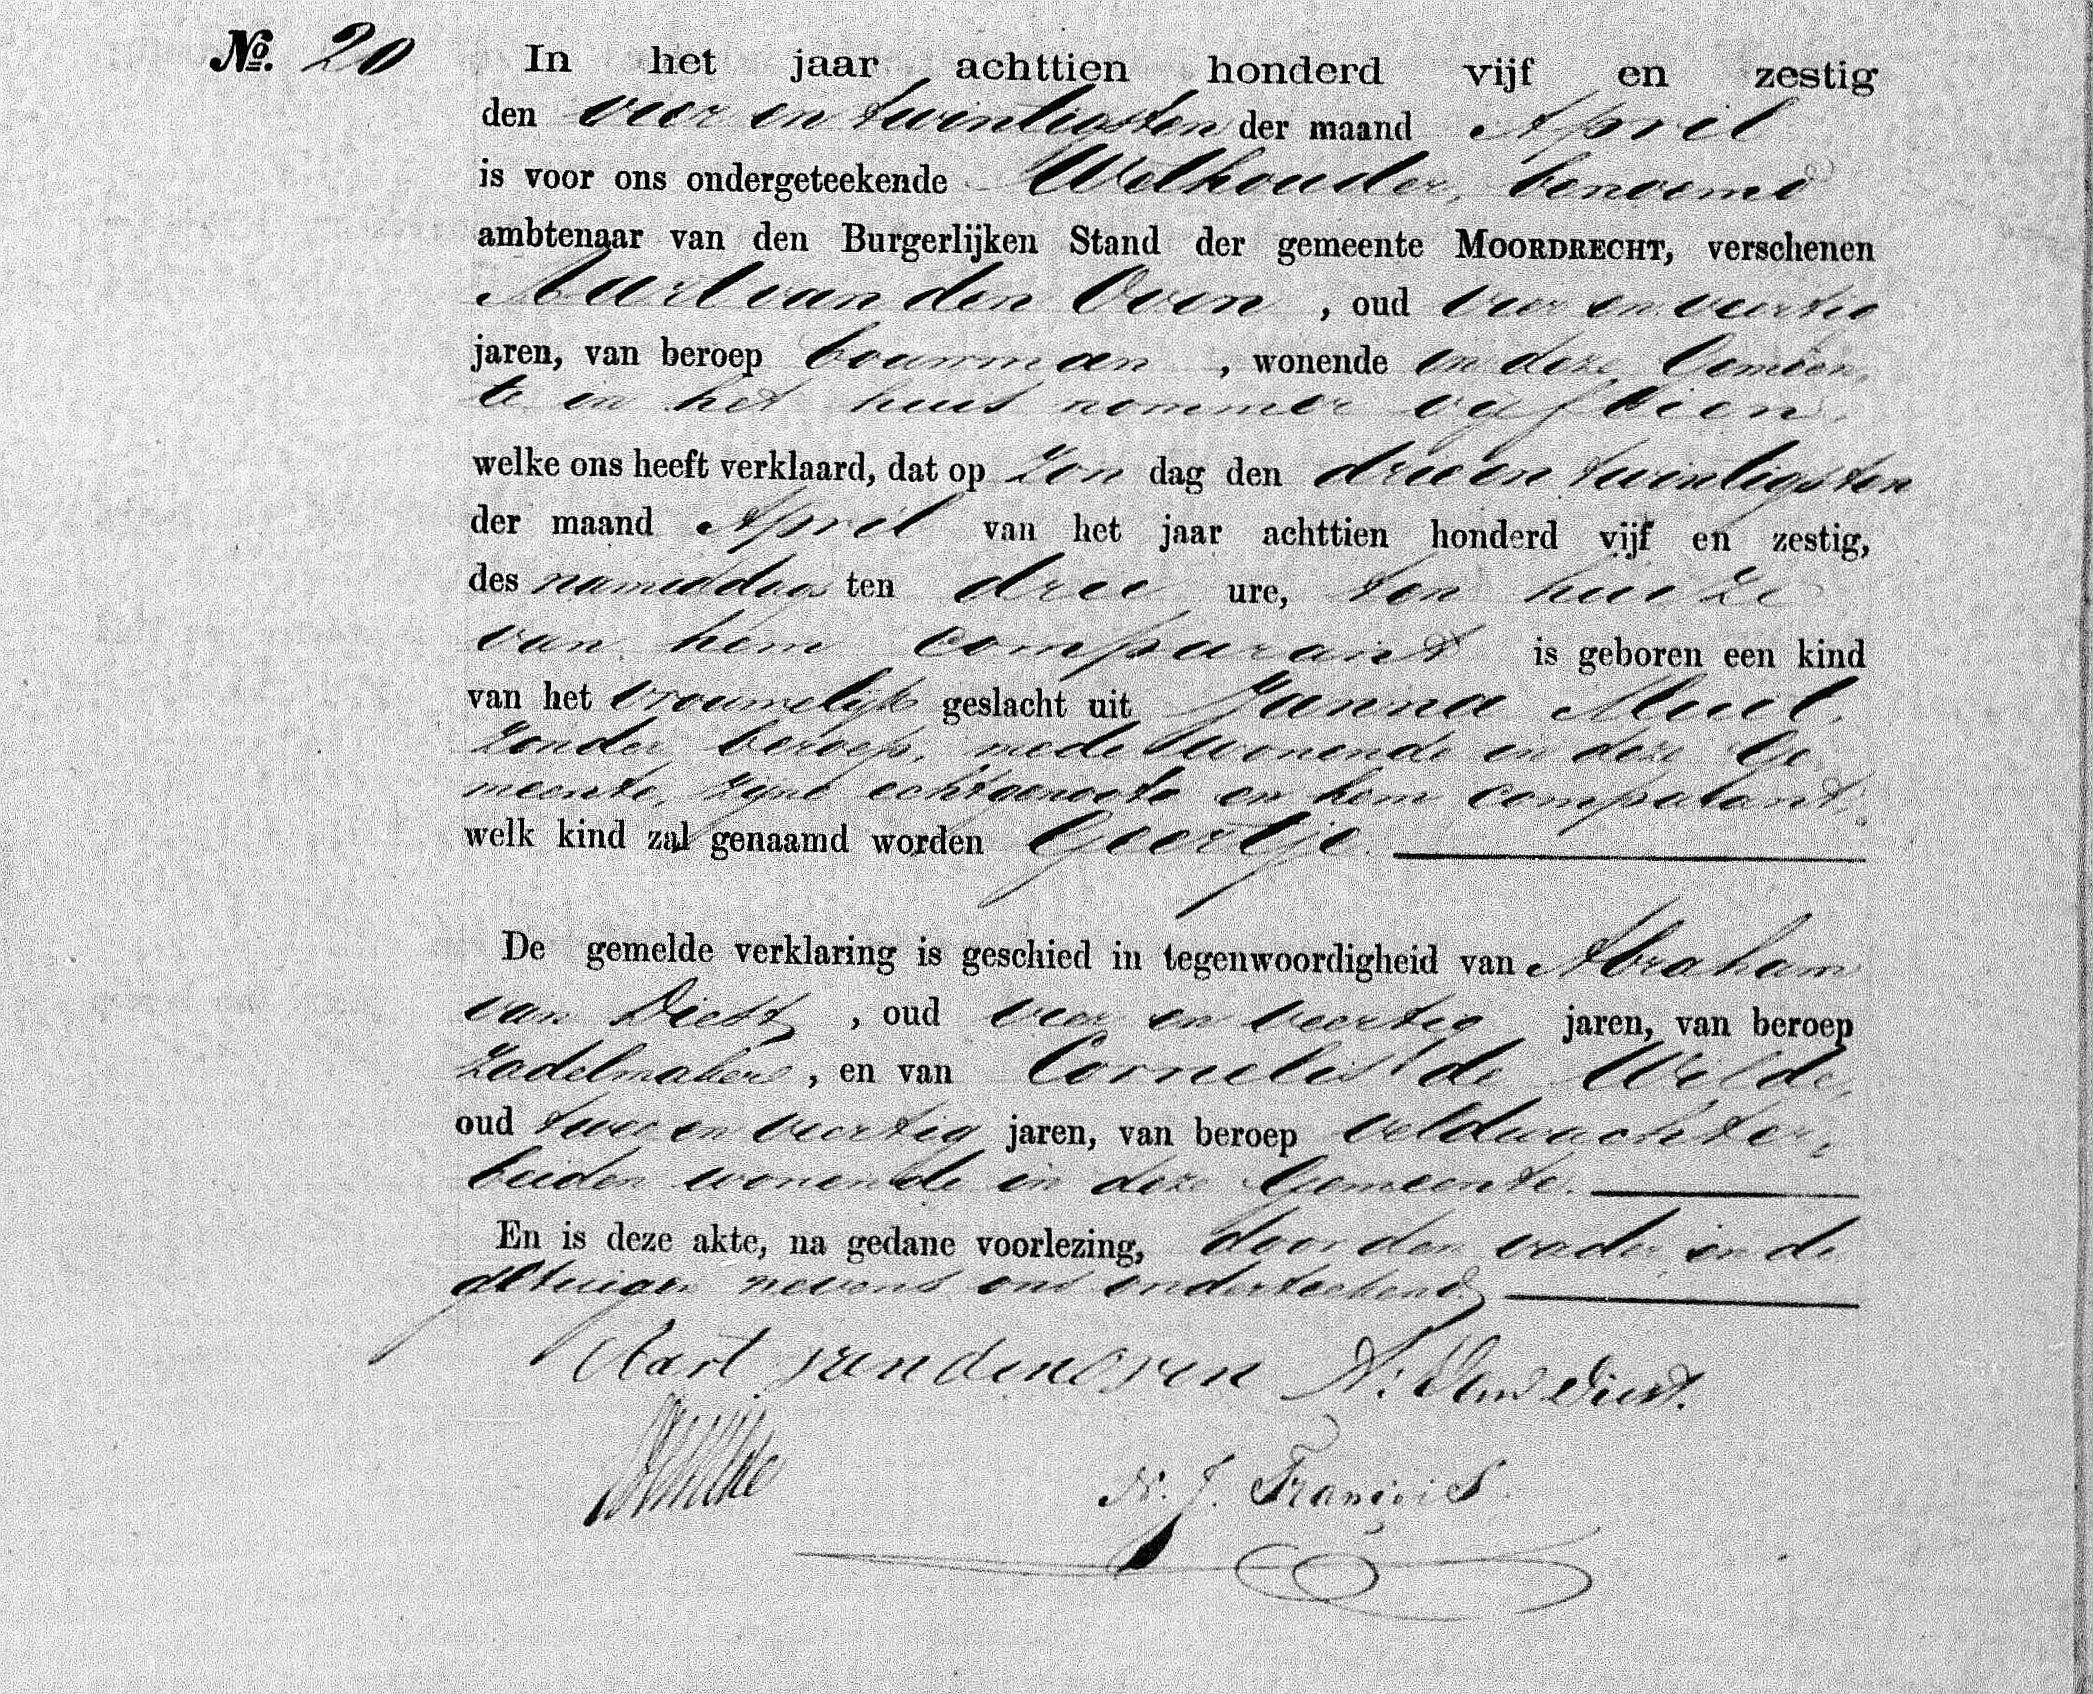 No. 20 In het jaar achttien honderd vijf en zestig
den vier en twintigsten der maand April
is voor ons ondergeteekende Wethouder, benoemd
ambtenaar van den Burgerlijken Stand der gemeente MOORDRECHT, verschenen
Aart van den Oven , oud vier en veertig
jaren, van beroep bouwman , wonende in deze Gemeen
te in het huis nommer vijftien,
welke ons heeft verklaard, dat op Zon dag den drie en twintigsten
der maand April van het jaar achttien honderd vijf en zestig,
des namiddags ten drie ure, ten huize
van hem comparant is geboren een kind
van het vrouwelijk geslacht uit Janna Muil,
zonder beroep, mede wonende in deze Ge
meente, zijne echtgenoote en hem comparant,
welk kind zal genaamd worden Geertje.
De gemelde verklaring is geschied in tegenwoordigheid van Abraham
van Diest , oud vier en veertig jaren, van beroep
zadelmaker , en van Cornelis de Wilde,
oud twee en veertig jaren, van beroep veldwachter,
beiden wonende in deze Gemeente.
En is deze akte, na gedane voorlezing, door den vader en de
getuigen nevens ons onderteekend
Aart van den Oven A: Van Diest.
de Wilde N. J. François.